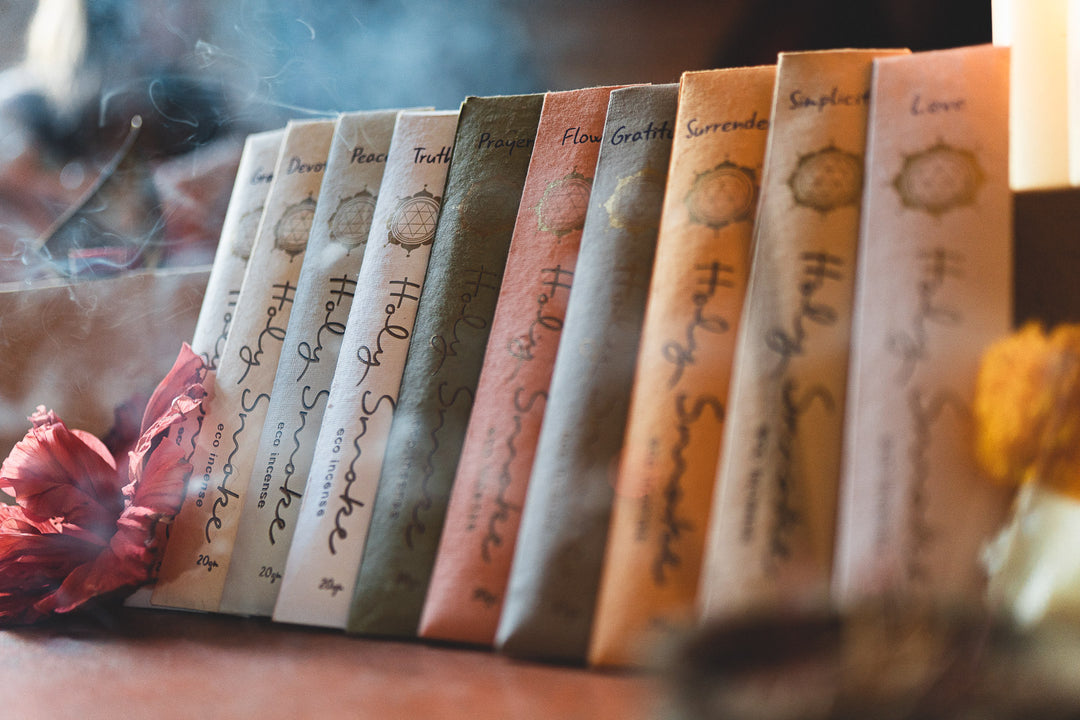 Gra
Devo
Peace
Truth
Prayer
Flow
Gratitu
Surrende
Simplicit
Love
Holy Smoke
eco incense
20gm
Holy Smoke
eco incense
20gm
Holy Smoke
eco incense
20gm
Holy Smoke
eco incense
Holy Smoke
eco incense
Holy Smoke
Holy Smoke
Holy Smoke